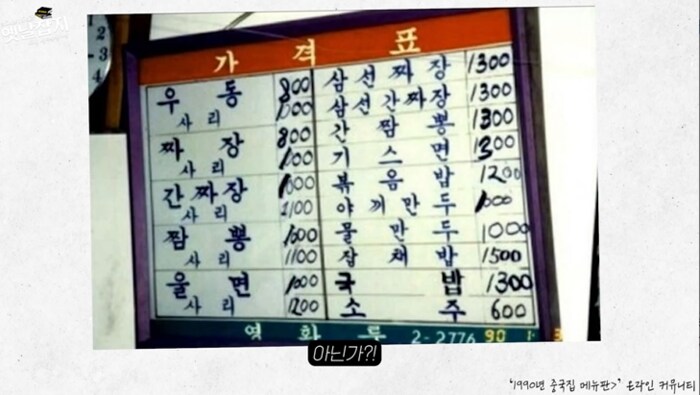 2
3
4
가격표
우동 800
사리 1000
짜장 800
사리 1000
간짜장 1000
사리 1100
짬뽕 1000
사리 1100
울면 1000
사리 1200
삼선짜장 1300
삼선간짜장 1300
간짬뽕 1300
기스면 1300
볶음밥 1200
야끼만두 1000
물만두 1000
잡채밥 1500
국밥 1300
소주 600
영화루 2-2776 90 1 3
아닌가?!
'1990년 중국집 메뉴판>' 온라인 커뮤니티